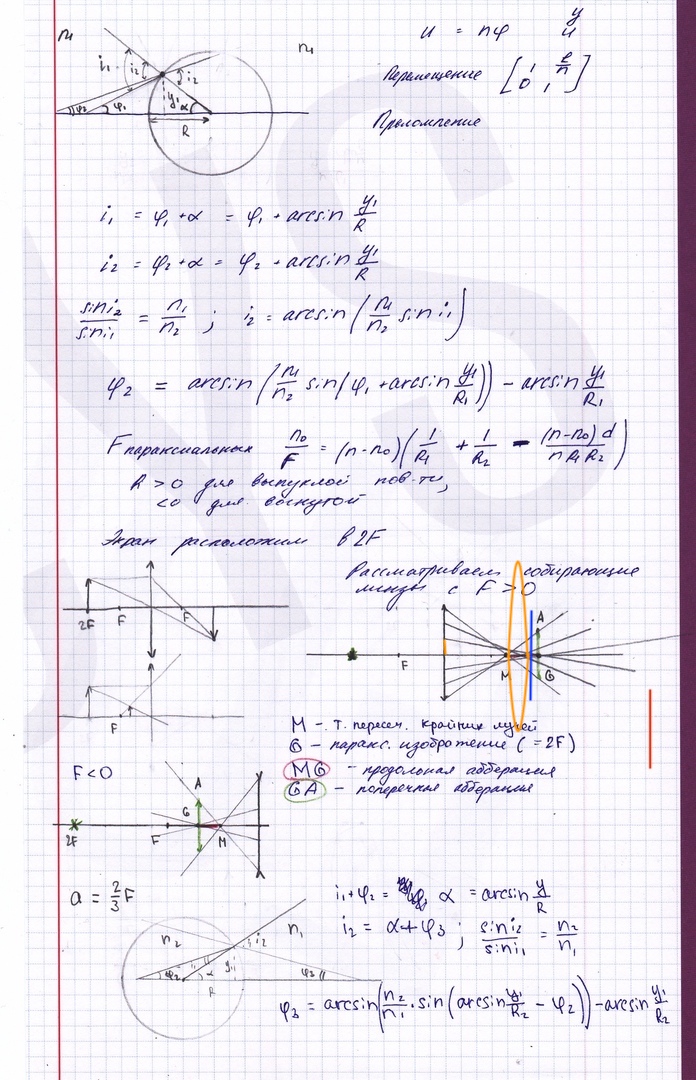 n₁ n₁
i₁ i₂ i₂
φ₂ φ₁ y₁ α
R
u = nφ y u
Перемещение [1, l/n; 0, 1]
Преломление
i₁ = φ₁ + α = φ₁ + arcsin y₁/R
i₂ = φ₂ + α = φ₂ + arcsin y₁/R
sin i₂/sin i₁ = n₁/n₂ ; i₂ = arcsin (n₁/n₂ sin i₁)
φ₂ = arcsin (n₁/n₂ sin(φ₁ + arcsin y₁/R₁)) - arcsin y₁/R₁
F параксиальных n₀/F = (n-n₀)(1/R₁ + 1/R₂ - (n-n₀)d/n R₁R₂)
R > 0 для выпуклой пов-ти,
< 0 для вогнутой
Экран расположим в 2F
Рассматриваем собирающие
линзы с F > 0
2F F F
F
F M A G
M - т. пересеч. крайних лучей
G - паракс. изображение (= 2F)
MG - продольная абберация
GA - поперечная абберация
F<0
A G
2F F M
a = 2/3 F
i₁ + φ₂ = α = arcsin y/R
i₂ = α + φ₃ ; sin i₂/sin i₁ = n₂/n₁
n₂ n₁ i₂
φ₂ α y₁ φ₃
R
φ₃ = arcsin(n₂/n₁ · sin(arcsin y₁/R₂ - φ₂)) - arcsin y₁/R₂